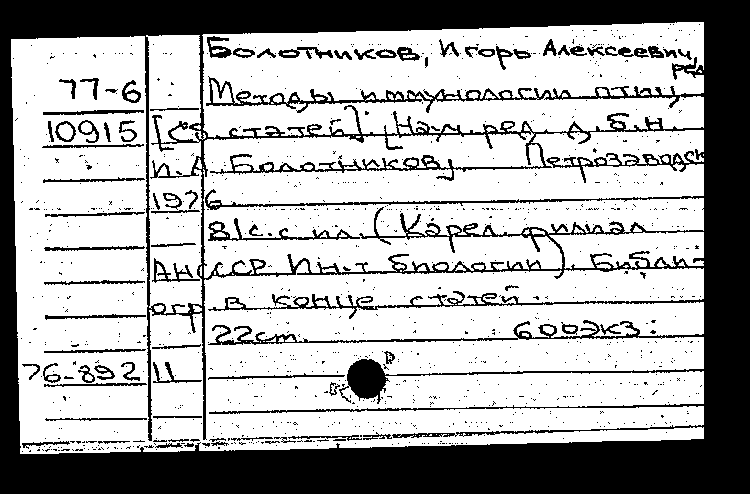 Болотников, Игорь Алексеевич, ред
77-6 Методы иммунологии птиц.
10915 [Сб. статей]. [Науч. ред. д. б. н.
И. А. Болотников]. Петрозаводск
1976.
81с. с ил. (Карел. филиал
АНСССР. Ин-т биологии). Библи-
огр. в конце статей.
22см. 600экз:
76-892 11